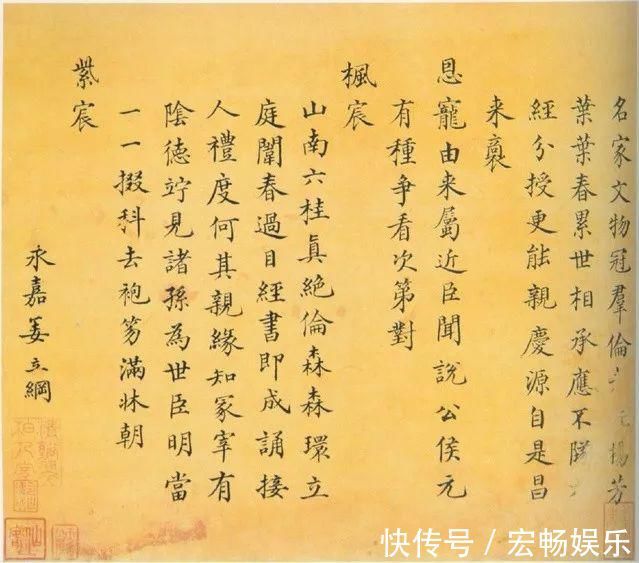 名家文物冠羣倫 揚芳
葉葉春累世相承應不隊
經分授更能親慶源自是昌
来裔
恩寵由来屬近臣聞說公侯元
有種争看次第對
楓宸
山南六桂真絶倫森森環立
庭闈春過目經書即成誦接
人禮度何其親緣知冢宰有
陰德竚見諸孫為世臣明當
一一掇科去袍笏滿牀朝
紫宸
永嘉姜立綱
快传号 / 宏畅娱乐